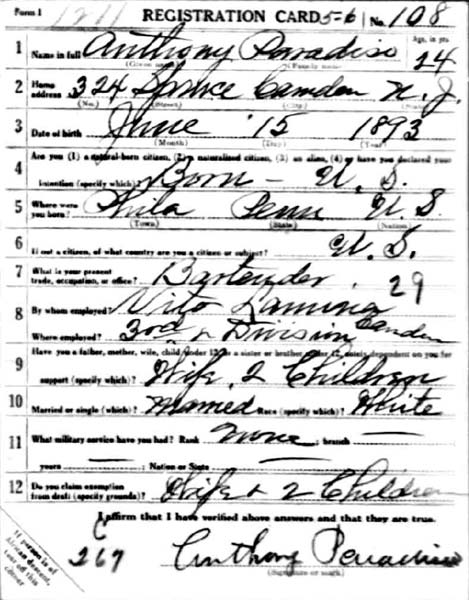 Form 1 1211 REGISTRATION CARD 5-6 No. 108
1 Name in full Anthony Paradise Age, in yrs.
(Given name) (Family name) 24
2 Home address 324 Spruce Camden N. J.
(No.) (Street) (City) (State)
3 Date of birth June 15 1893
(Month) (Day) (Year)
Are you (1) a natural-born citizen, (2) a naturalized citizen, (3) an alien, (4) or have you declared your
4 intention (specify which)? Born - U. S.
5 Where were you born? Phila Penn U. S.
(Town) (State) (Nation)
6 If not a citizen, of what country are you a citizen or subject? U. S.
7 What is your present trade, occupation, or office? Bartender. 29
8 By whom employed? Vito
Where employed? 3rd & Division Camden
9 Have you a father, mother, wife, child under 12, or a sister or brother under 12, solely dependent on you for
support (specify which)? Wife, 2 Children
10 Married or single (which)? Married Race (specify which)? White
11 What military service have you had? Rank None ; branch —
years — ; Nation or State —
12 Do you claim exemption from draft (specify grounds)? Wife & 2 Children
I affirm that I have verified above answers and that they are true.
If person is of African descent, tear off this corner
269 Anthony Paradise
(Signature or mark)